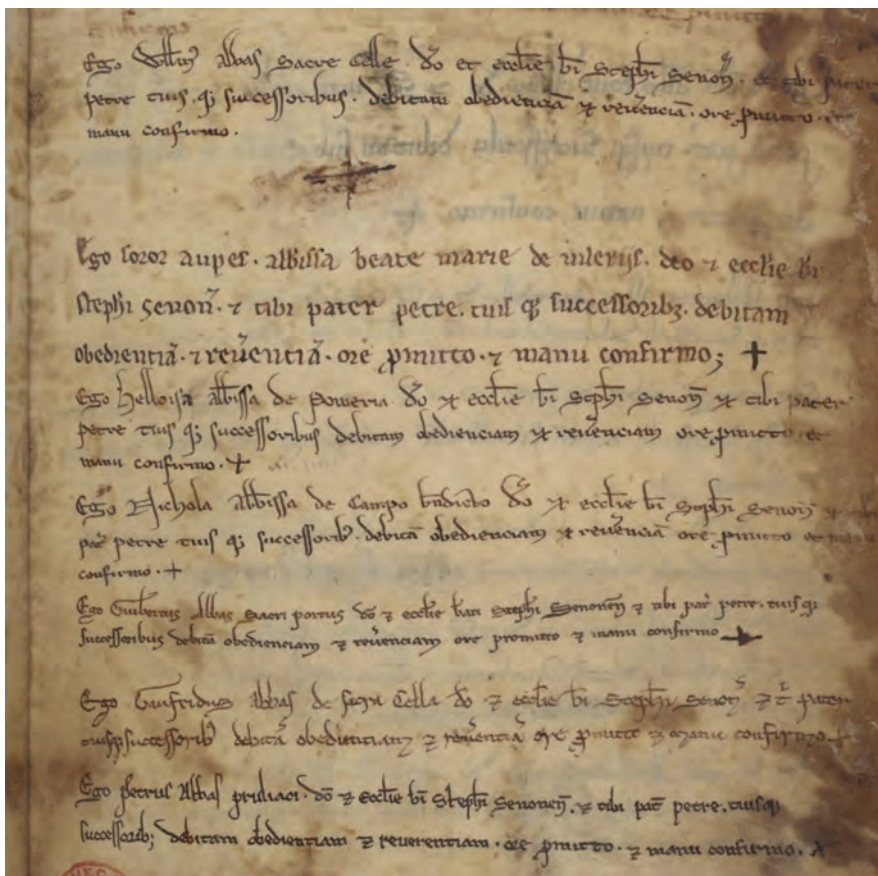 Ego Willms abbas Sacre Celle. do et ecclie bi Stephi Senon. et tibi pater
petre tuis. q; successoribus. debitam obedienciā & reuenciā. ore pmitto. et
manu confirmo.
Ego soror auper. abbissa beate marie de. deo ⁊ ecclie bi
stephi senon. ⁊ tibi pater petre. tuis q; successorib;. debitam
obedientiā. ⁊ reuentiā. ore pmitto. ⁊ manu confirmo; +
Ego Helloisa abbissa de Poweria do & ecclie bi Stephi Senon & tibi pater
petre tuis q; successoribus debitam obedienciam & reuenciam ore pmitto et
manu confirmo. +
Ego Nichola abbissa de Campo bndicto do & ecclie bi Stephi Senon &
pat petre tuis q; successorib. debitā obedienciam & reuenciā ore pmitto et manu
confirmo. +
Ego Guibertus Abbas Sacri portus do ⁊ ecclie bati Stephi Senonen ⁊ tibi pat petre. tuisq;
successoribus debitā obedienciam ⁊ reuenciam ore promitto ⁊ manu confirmo +
Ego Gaufridus Abbas de sacra Cella do ⁊ ecclie bi Stephi Senon ⁊ t pater
tuisq; successorib debitā obedientiam ⁊ reuentiā ore pmitto ⁊ manu confirmo +
Ego petrus Abbas pruliaci. do ⁊ ecclie bi Stephi Senonen. ⁊ tibi pat petre. tuisq;
successorib; debitam obedientiam ⁊ reuerentiam. ore pmitto. ⁊ manu confirmo. +